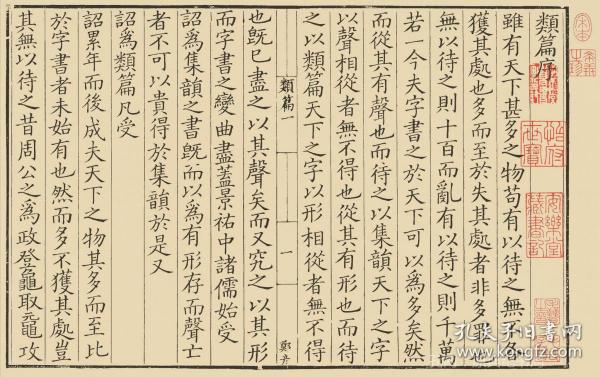 類篇序
雖有天下甚多之物苟有以待之無不各
獲其處也多而至於失其處者非多罪也
無以待之則十百而亂有以待之則千萬
若一今夫字書之於天下可以為多矣然
而從其有聲也而待之以集韻天下之字
以聲相從者無不得也從其有形也而待
之以類篇天下之字以形相從者無不得
類篇一
一
也既已盡之以其聲矣而又究之以其形
而字書之變曲盡蓋景祐中諸儒始受
詔為集韻之書既而以為有形存而聲亡
者不可以貴得於集韻於是又
詔為類篇凡受
詔累年而後成夫天下之物其多而至比
於字書者未始有也然而多不獲其處豈
其無以待之昔周公之為政登龜取黿攻
孔夫子旧书网